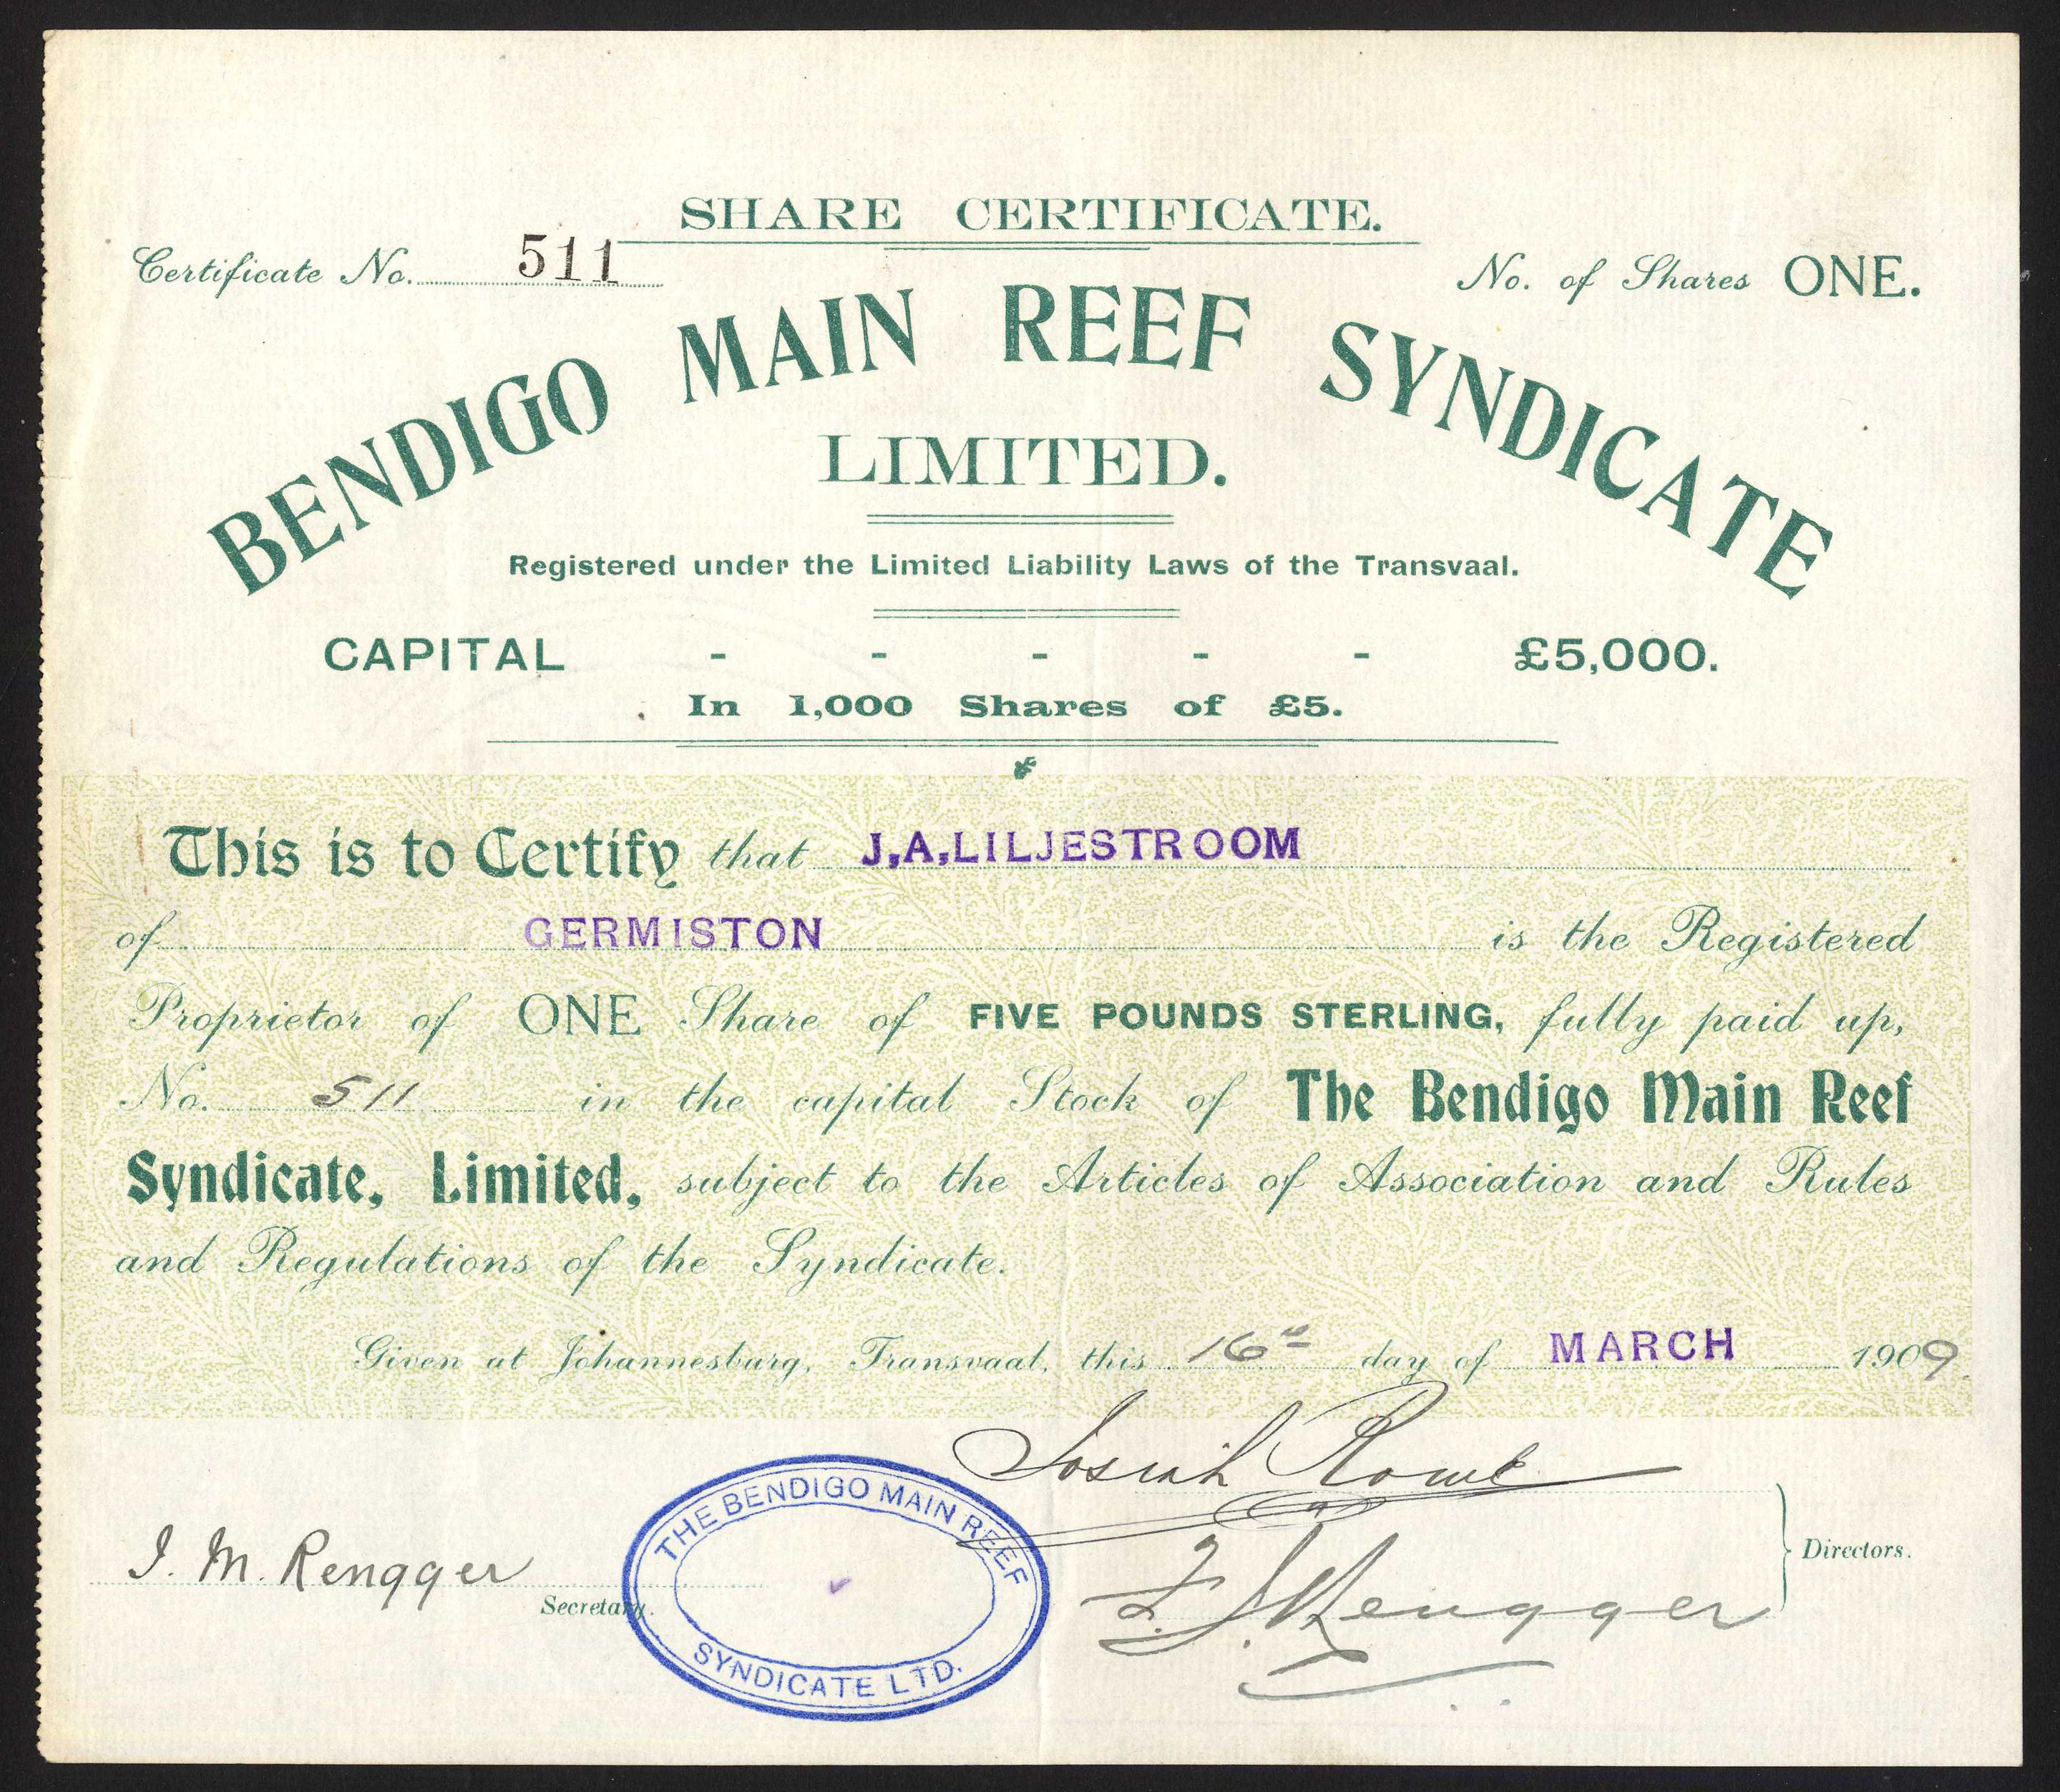 SHARE CERTIFICATE.
Certificate No. 511
No. of Shares ONE.
BENDIGO MAIN REEF SYNDICATE
LIMITED.
Registered under the Limited Liability Laws of the Transvaal.
CAPITAL - - - - - £5,000.
In 1,000 Shares of £5.
This is to Certify that J.A.LILJESTROOM
of GERMISTON is the Registered
Proprietor of ONE Share of FIVE POUNDS STERLING, fully paid up,
No. 511 in the capital Stock of The Bendigo Main Reef
Syndicate, Limited, subject to the Articles of Association and Rules
and Regulations of the Syndicate.
Given at Johannesburg, Transvaal, this 16th day of MARCH 1909.
Josiah Rowe
I. M. Rengger
Secretary.
THE BENDIGO MAIN REEF
SYNDICATE LTD.
F. J. Rengger
Directors.